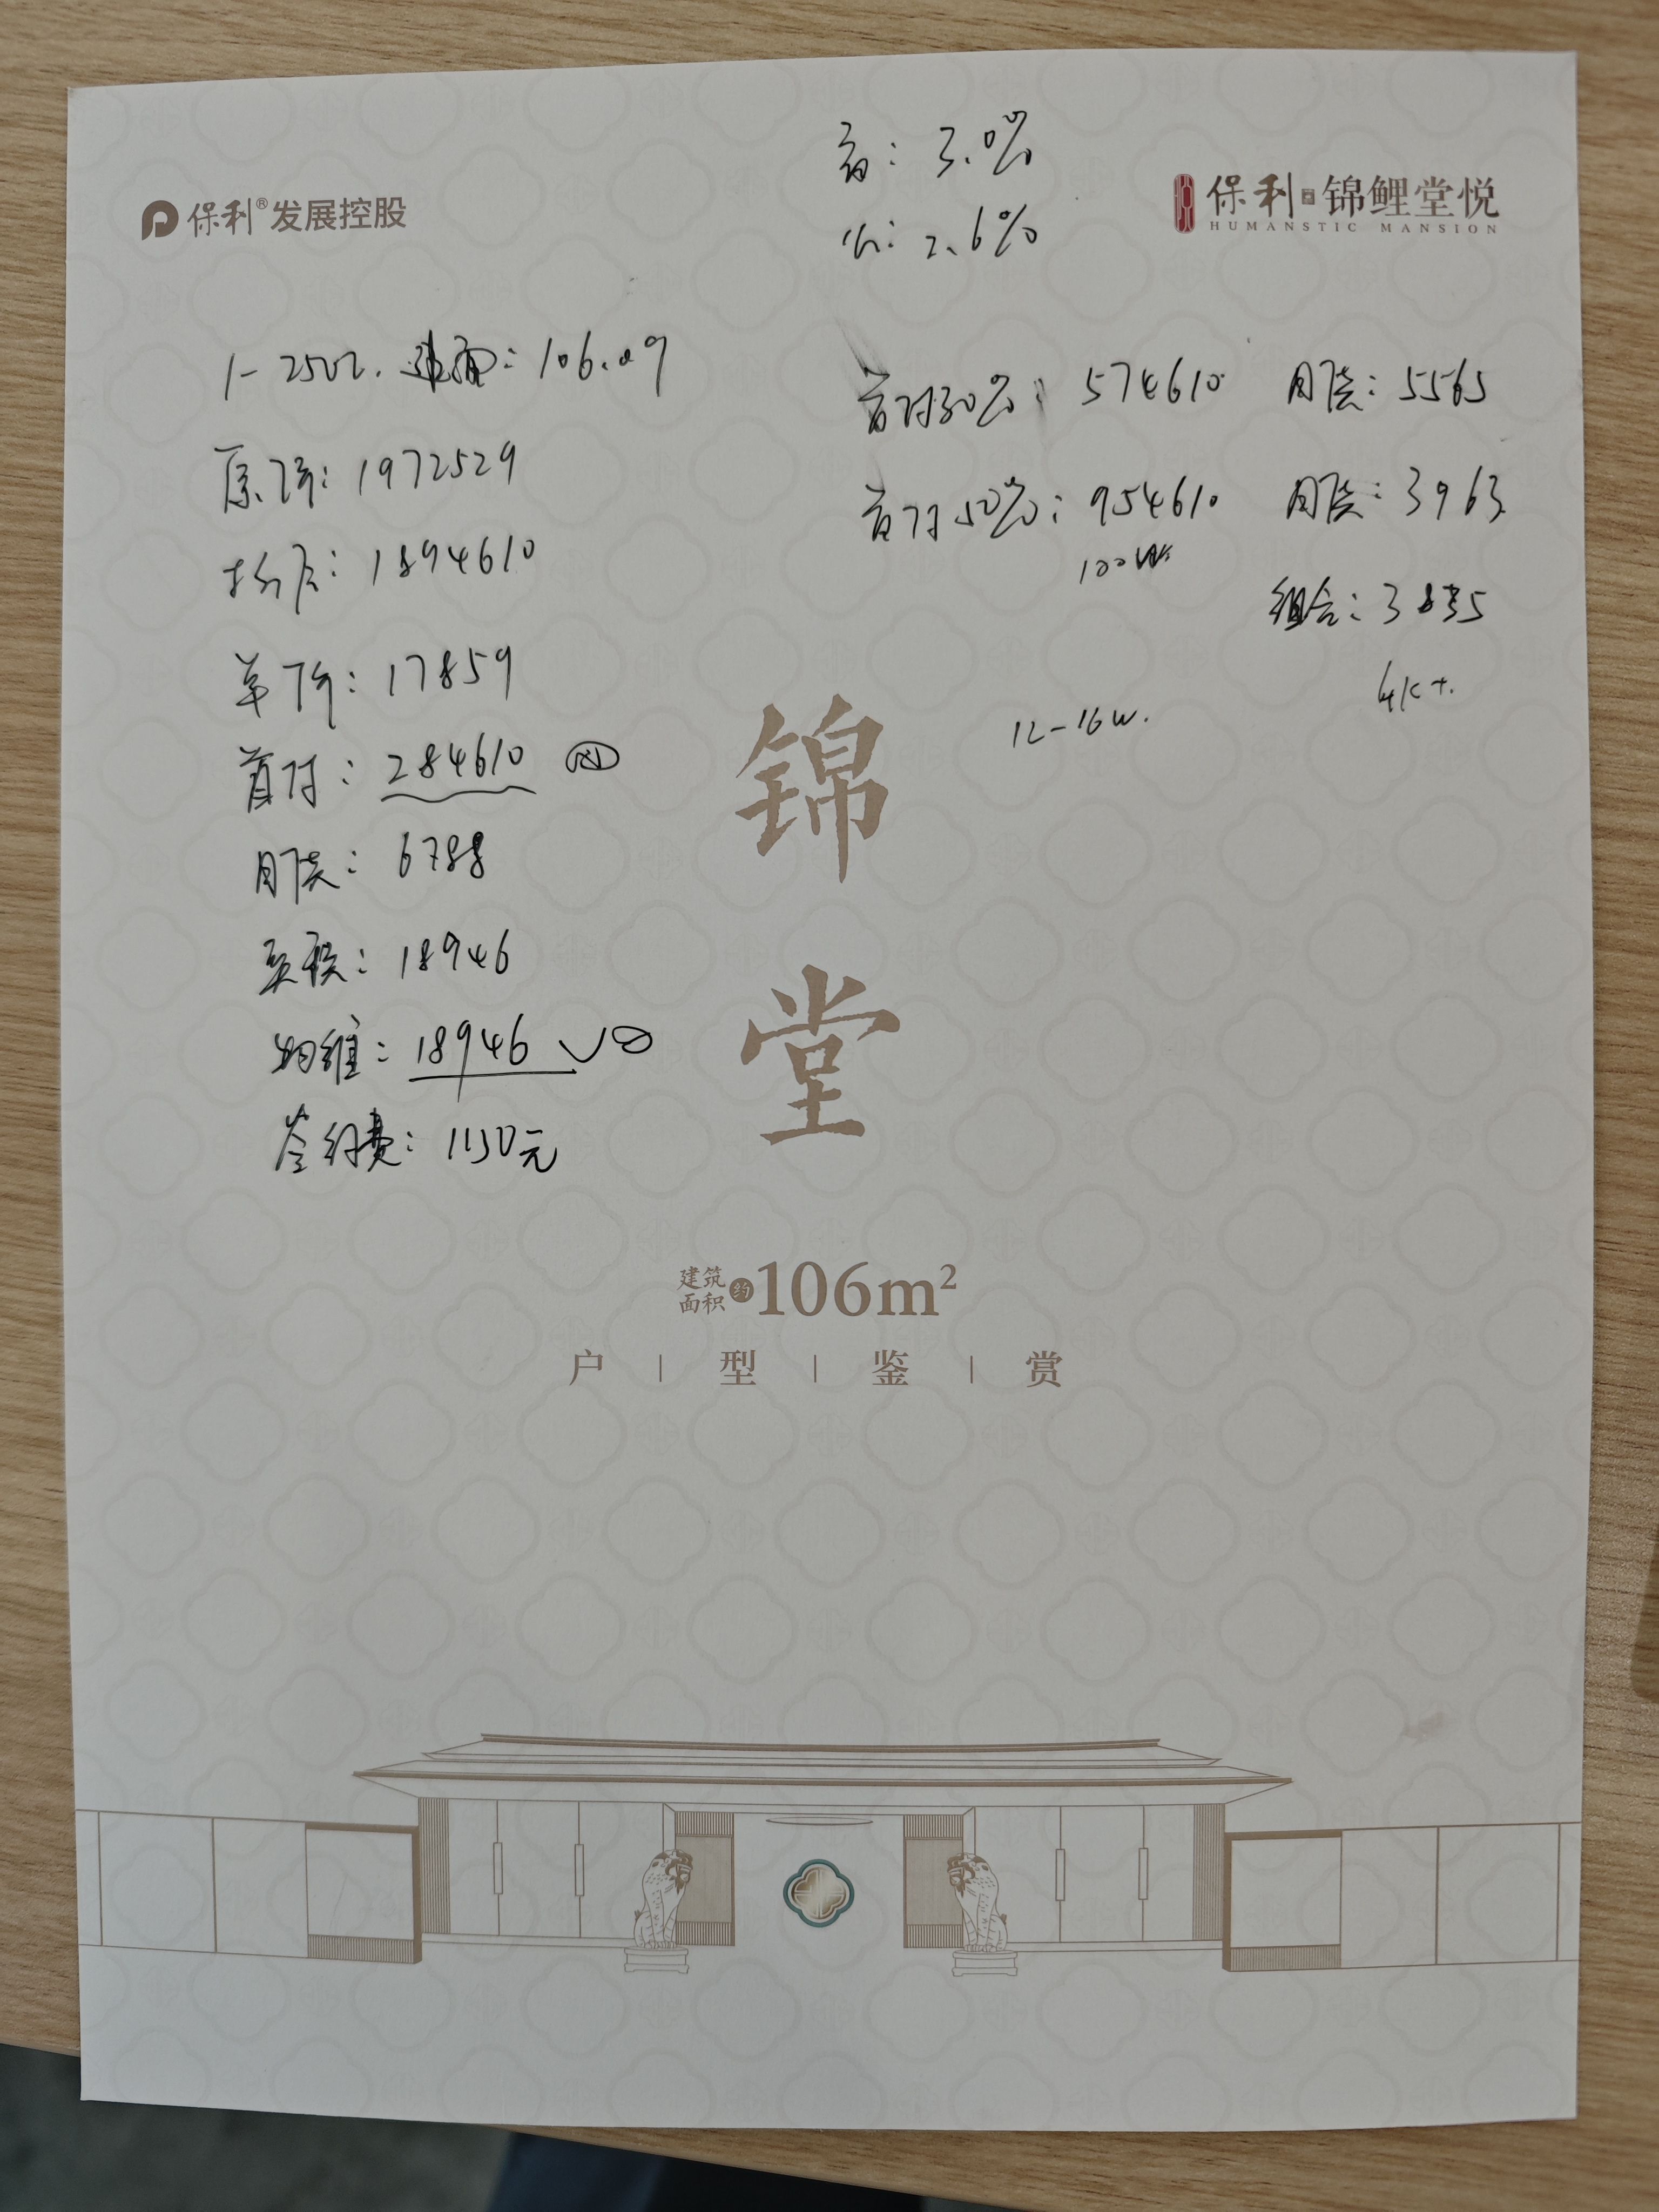 商：3.0%
公：2.6%
保利®发展控股
保利 锦鲤堂悦
HUMANSTIC MANSION
1-2502. 建面：106.09
原价：1972529
折后：1894610
单价：17859
首付：284610
月供：6788
契税：18946
物维：18946
签约费：1150元
首付30%：574610 月供：5565
首付50%：954610 月供：3963
100W
组合：3835
4K+.
12-16w.
锦
堂
建筑面积约106m²
户 | 型 | 鉴 | 赏